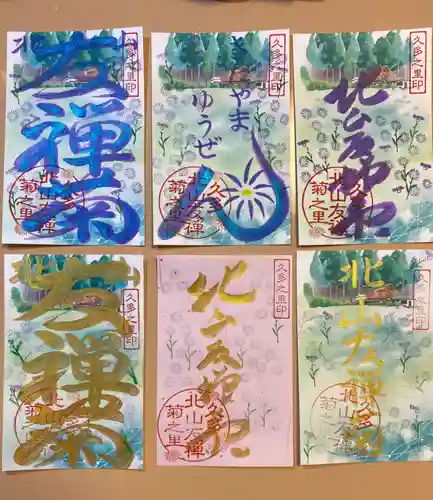 北山
友禅菊
久多之里印
久多
北山友禅
菊之里
きたやま
ゆうぜん
久多之里印
久多
北山友禅
菊之里
北山友禅菊
久多之里印
久多
北山友禅
菊之里
北山
友禅菊
久多之里印
久多
北山友禅
菊之里
北山友禅菊
久多之里印
久多
北山友禅
菊之里
北山友禅菊
久多之里印
久多
北山友禅
菊之里